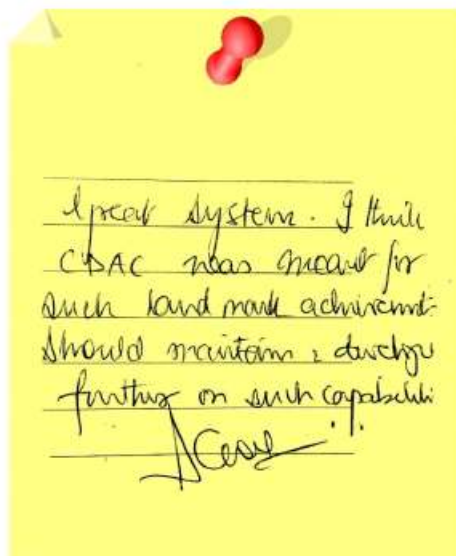 Great system. I think
CDAC was meant for
such land mark achievement.
Should maintain & develop
further on such capabilities